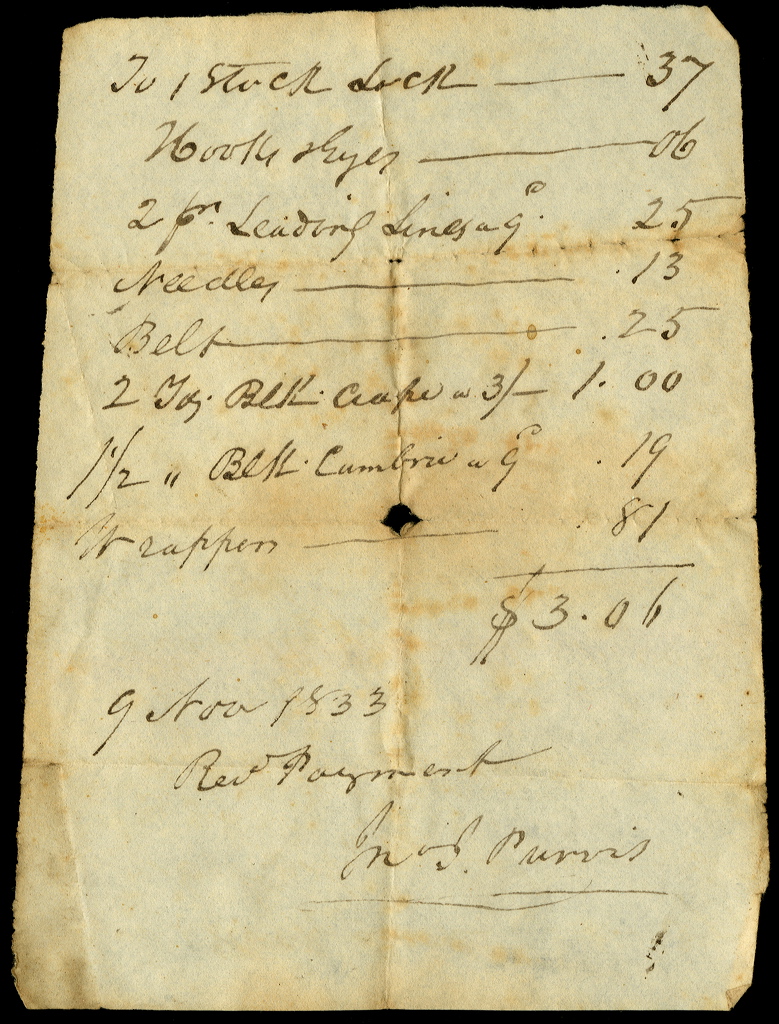 To 1 Stock Lock — 37
Hooks & Eyes — 06
2 pr. Leading Lines a 9d. 25
Needles — .13
Belt — .25
2 Yds. Blk. Crape a 3/– 1.00
1 1/2 " Blk. Cambric a 9d .19
Wrappers — .81
$3.06
9 Nov 1833
Recd Payment
Jno J. Purvis